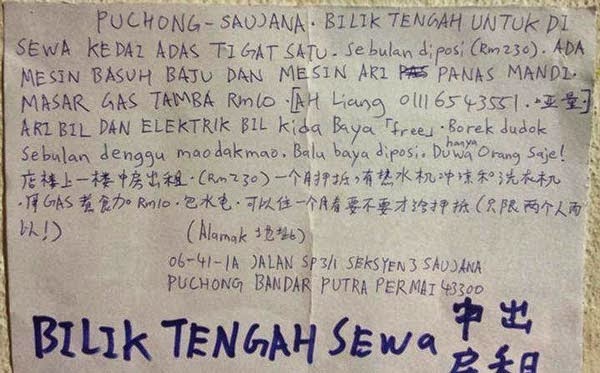 PUCHONG-SAUJANA. BILIK TENGAH UNTUK DI
SEWA KEDAI ADAS TIGAT SATU. Sebulan diposi (Rm230). ADA
MESIN BASUH BAJU DAN MESIN ARI PANAS MANDI.
MASAR GAS TAMBA Rm10. [AH Liang 01116543551. 亚量.]
ARI BIL DAN ELEKTRIK BIL Kida Baya 「free」. Borek dudok
Sebulan denggu maodakmao. Balu baya diposi. Duwa hanya Orang Saje!
店楼上一楼中房出租. (Rm230). 一个月押抵, 有热水机冲凉和洗衣机
GAS 煮食加 Rm10. 包水电. 可以住一个月看要不要才给押抵 (只限两个人而
以!) (Alamak 地址)
06-41-1A JALAN SP3/1 SEKSYEN 3 SAUJANA
PUCHONG BANDAR PUTRA PERMAI 43300
BILIK TENGAH SEWA 中出
房租